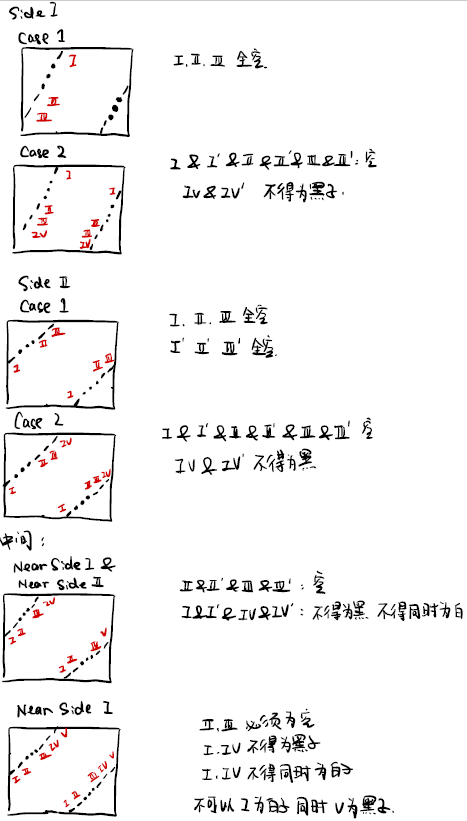 Side I
Case 1
I
III
IV
I. II. III 全空
Case 2
I
II
III
IV
I
II
III
IV
I & I' & II & II' & III & III' : 空
IV & IV' 不得为黑子.
Side II
Case 1
I
II
III
I
II
III
I. II. III 全空
I' II' III' 全空
Case 2
I
II
III
IV
I
II
III
IV
I & I' & II & II' & III & III' 空
IV & IV' 不得为黑
中间:
Near Side I &
Near Side II
I
II
III
IV
I
II
III
V
II & II' & III & III' : 空
I & I' & IV & IV' : 不得为黑 不得同时为白
Near Side I
I
II
III
IV
V
I
II
III
IV
V
II. III 必须为空
I. IV 不得为黑子
I. IV 不得同时为白子
不可以 I 为白子 同时 V 为黑子.